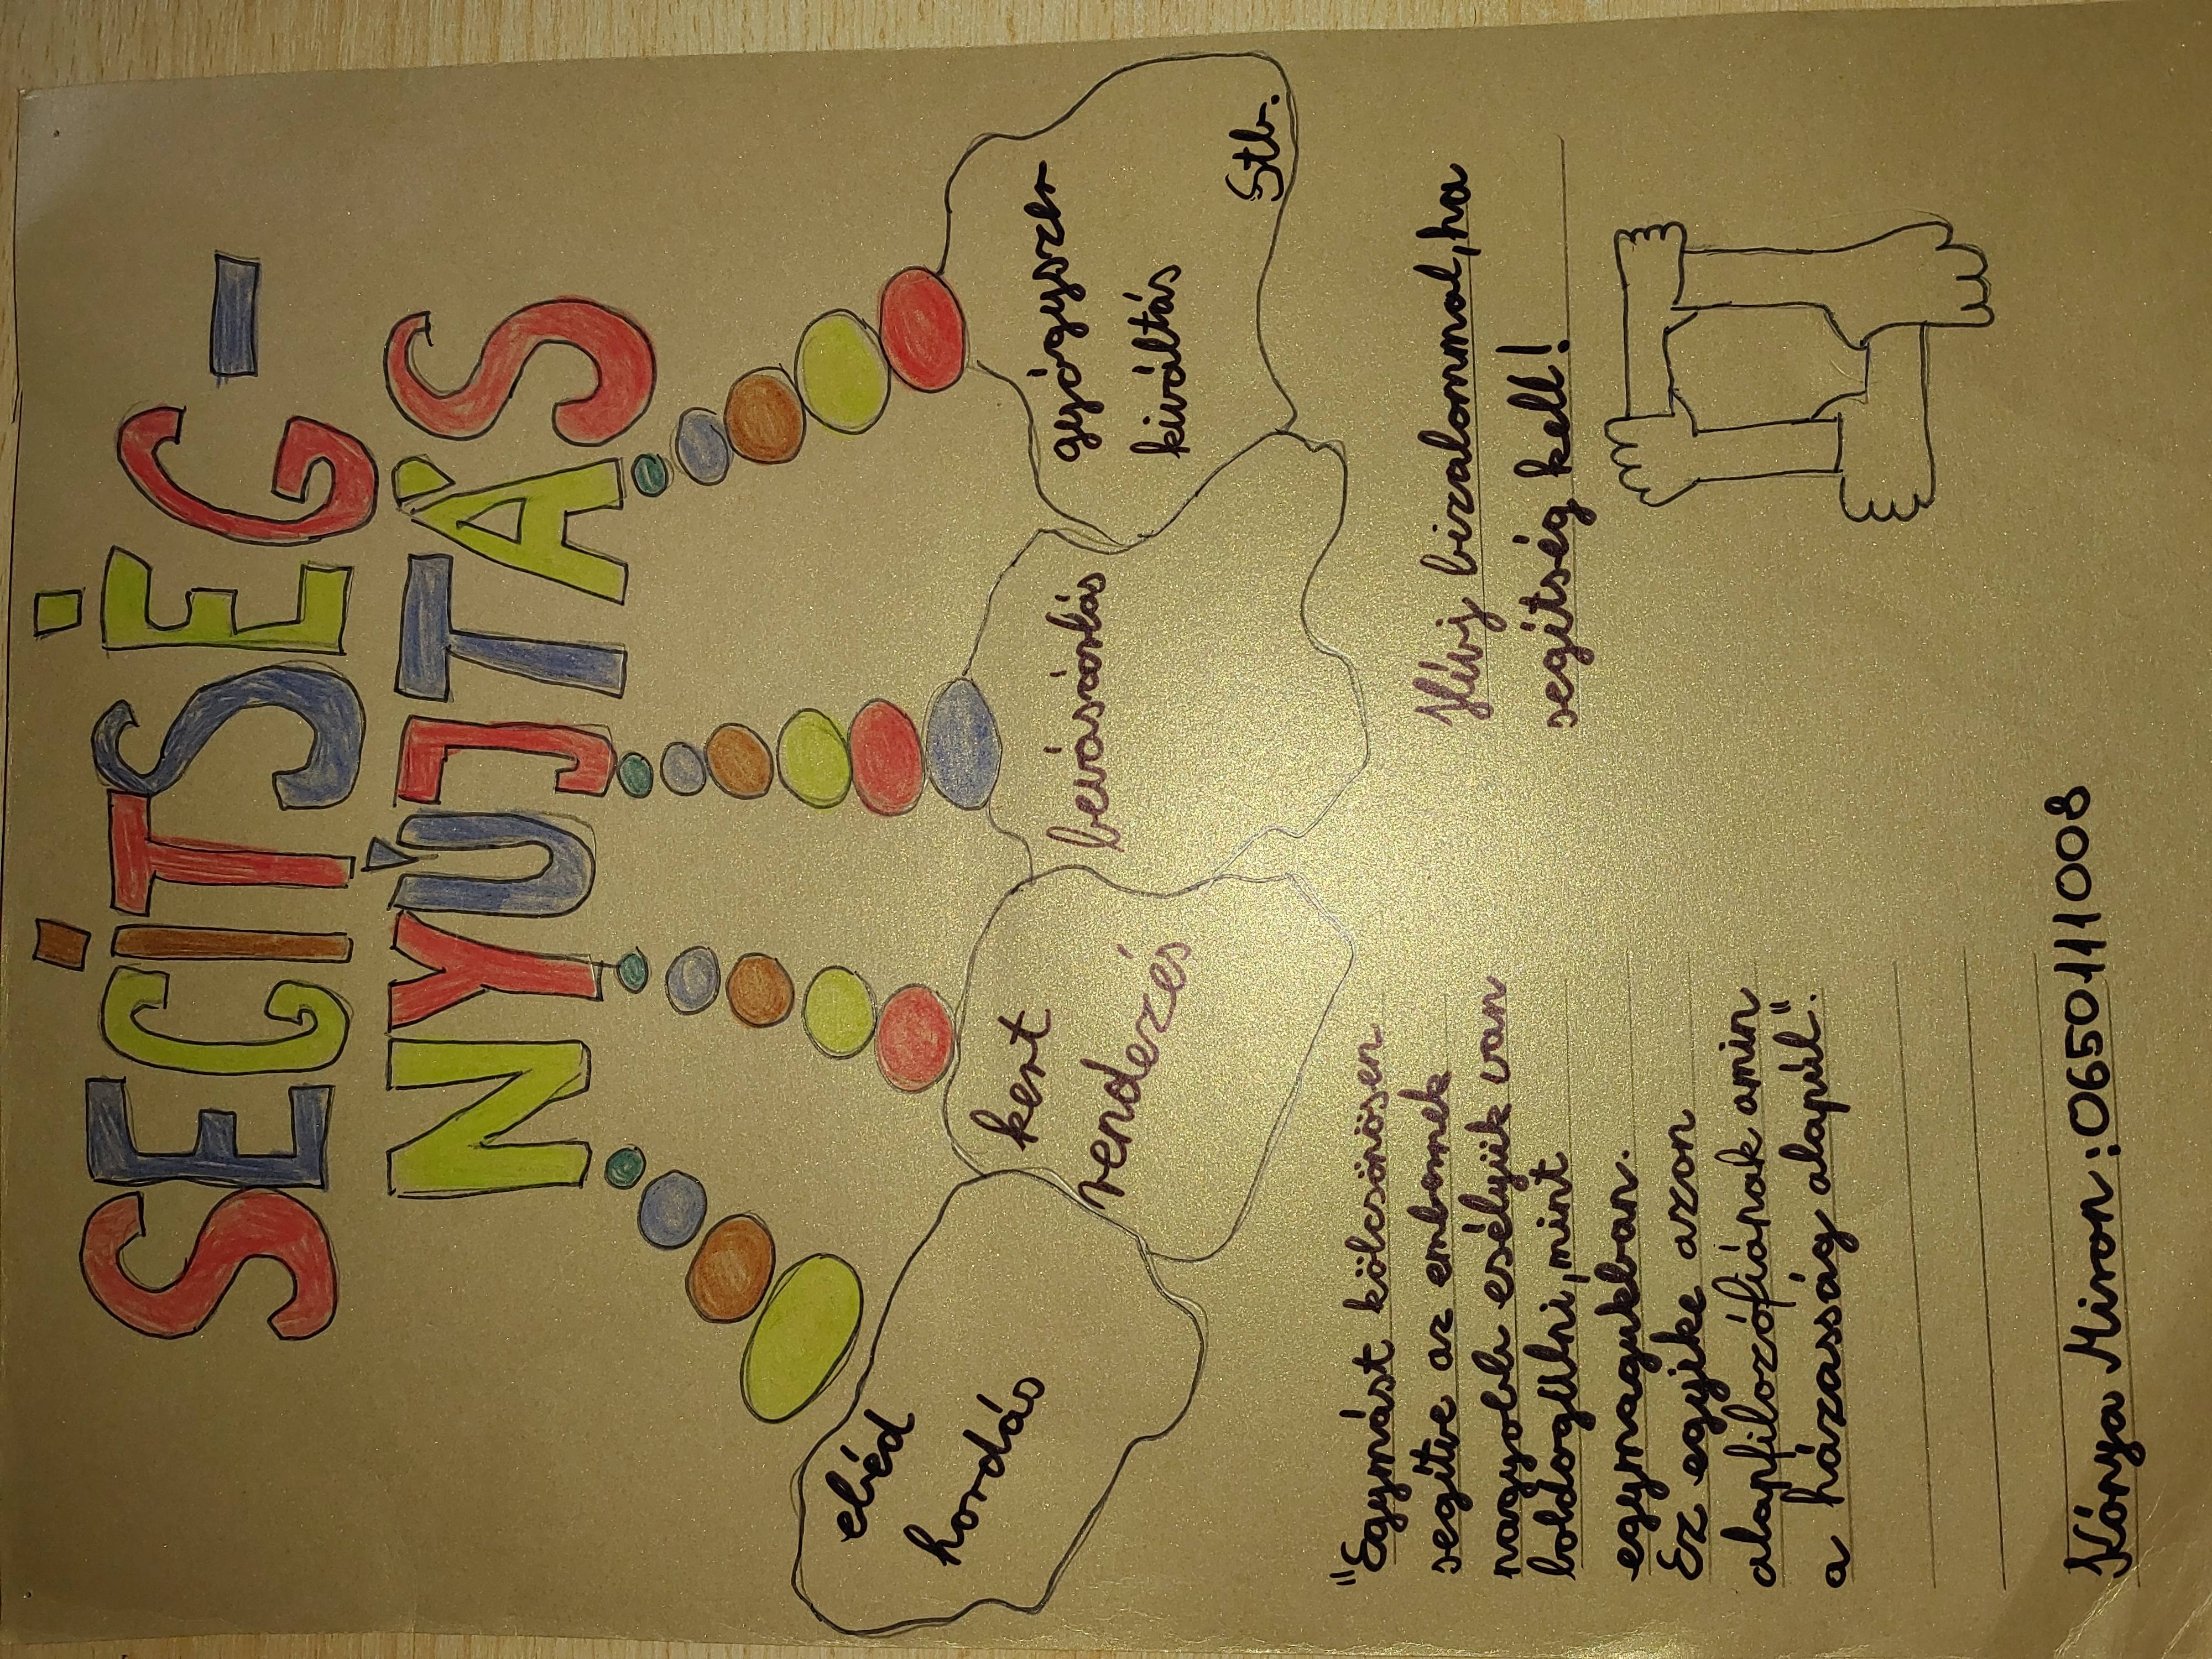 SEGÍTSÉG-
NYÚJTÁS
ebéd
hordás
kert
rendezés
bevásárlás
gyógyszer
kiváltás
Stb.
"Egymást kölcsönösen
segítve az embernek
nagyobb esélyük van
boldogulni, mint
egymagukban.
Ez egyike azon
alapfilozófiának amin
a házasság alapúl".
Hívj bizalommal, ha
segítség kell!
Kónya Miron: 06501111008